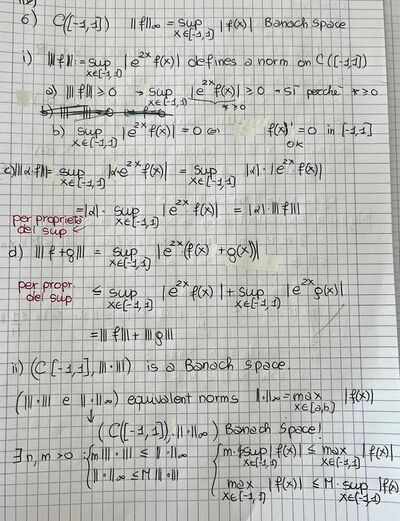 6) C([-1,1]) ||f||∞ = sup x∈[-1,1] |f(x)| Banach space
i) |||f||| := sup x∈[-1,1] |e^2x f(x)| defines a norm on C([-1,1])
a) |||f||| ≥ 0 → sup x∈[-1,1] |e^2x f(x)| ≥ 0 → sì perché * ≥ 0
* ≥ 0
b) sup x∈[-1,1] |e^2x f(x)| = 0 ⇔ f(x) = 0 in [-1,1]
OK
c) |||α f||| = sup x∈[-1,1] |α e^2x f(x)| = sup x∈[-1,1] |α| · |e^2x f(x)|
= |α| · sup x∈[-1,1] |e^2x f(x)| = |α| · |||f|||
per proprietà
del sup
d) |||f+g||| = sup x∈[-1,1] |e^2x (f(x) + g(x))|
per propr.
del sup
≤ sup x∈[-1,1] |e^2x f(x)| + sup x∈[-1,1] |e^2x g(x)|
= |||f||| + |||g|||
ii) (C[-1,1], |||·|||) is a Banach space.
(|||·||| e ||·||∞) equivalent norms ||·||∞ = max x∈[a,b] |f(x)|
↓
(C([-1,1]), ||·||∞) Banach space!
∃ n, m > 0 : { m |||·||| ≤ ||·||∞ { m · sup x∈[-1,1] |f(x)| ≤ max x∈[-1,1] |f(x)|
||·||∞ ≤ M |||·||| max x∈[-1,1] |f(x)| ≤ M · sup x∈[-1,1] |f(x)